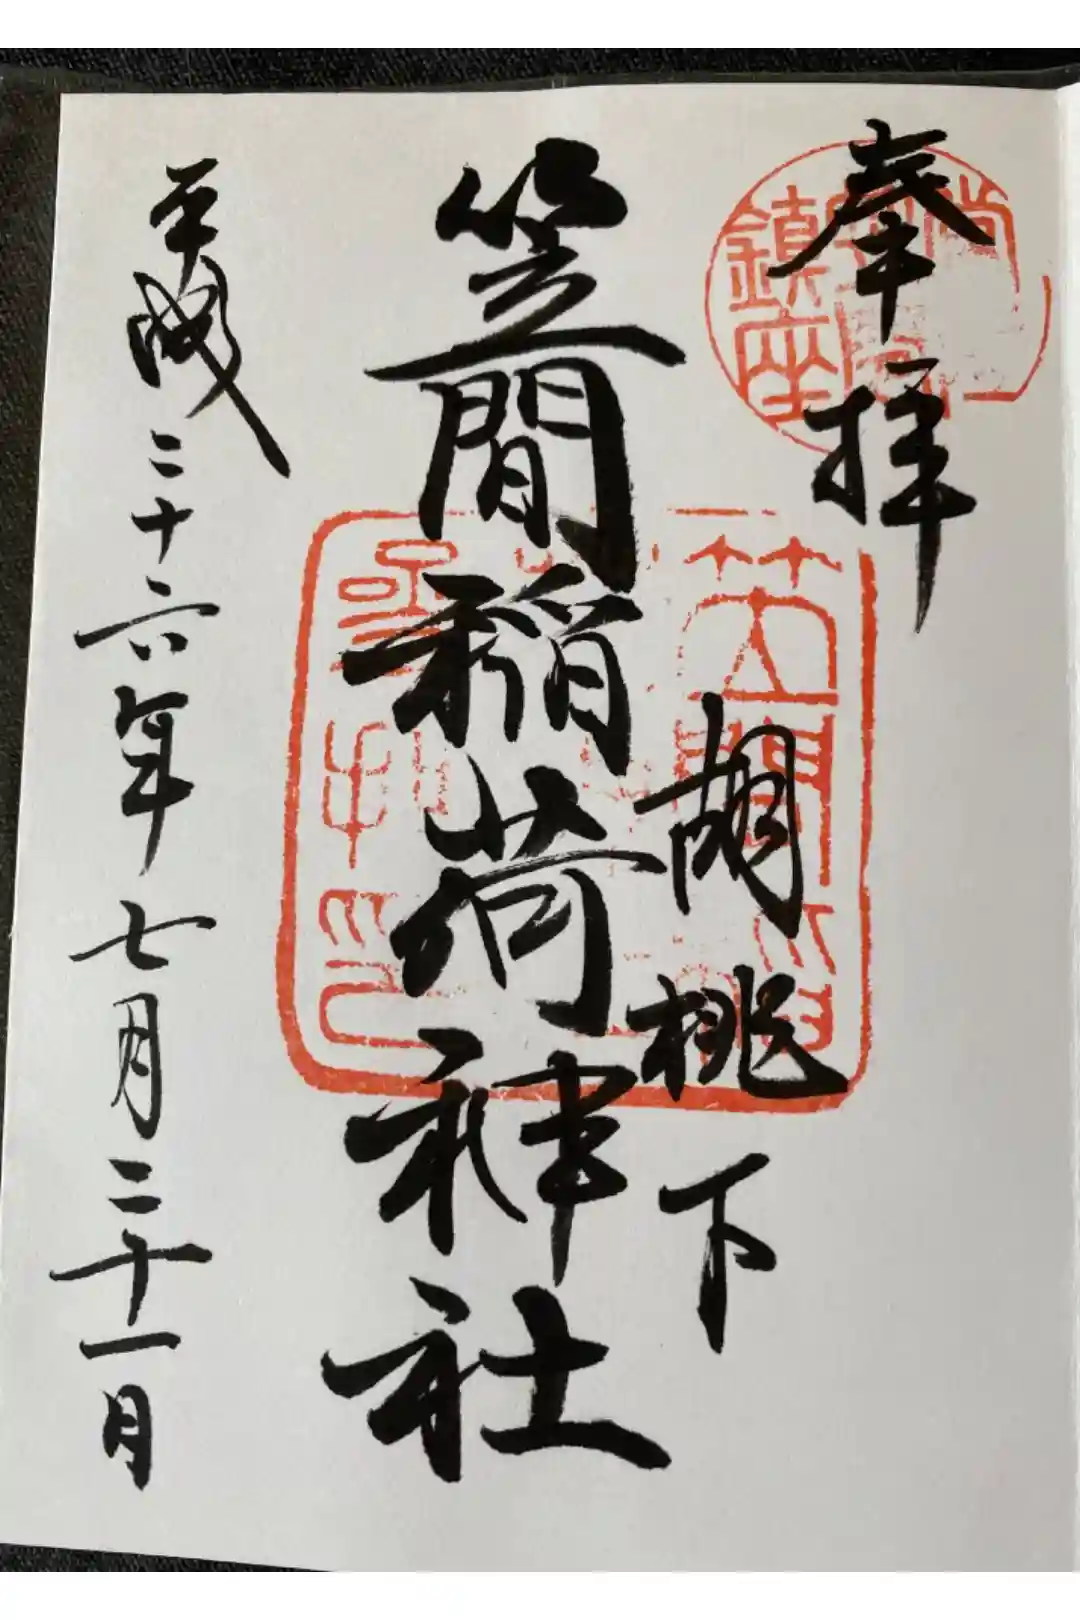 奉拝
胡桃下
笠間稲荷神社
平成二十六年七月二十一日
鎮座